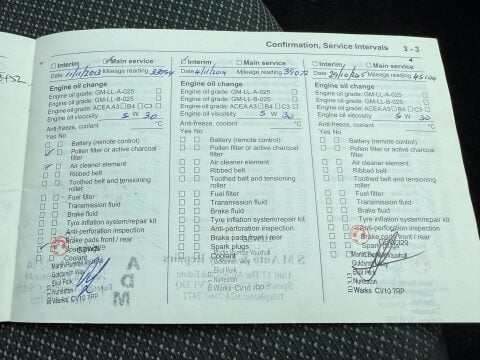 Confirmation, Service Intervals 3 - 3
Interim Main service
Date 11/11/2013 Mileage reading
Engine oil change
Engine oil grade: GM-LL-A-025
Engine oil grade: GM-LL-B-025
Engine oil grade: ACEA A3 B4 C3
Engine oil viscosity 5 W 30
Anti-freeze, coolant °C
Yes No
Battery (remote control)
Pollen filter or active charcoal
filter
Air cleaner element
Ribbed belt
Toothed belt and tensioning
roller
Fuel filter
Transmission fluid
Brake fluid
Tyre inflation system/repair kit
Anti-perforation inspection
Brake pads front / rear
Spark plugs
Coolant
Goldsmith Way
Eliot Park
Nuneaton
Warks CV10 7RP
Interim Main service
Date 4/11/2014 Mileage reading
Engine oil change
Engine oil grade: GM-LL-A-025
Engine oil grade: GM-LL-B-025
Engine oil grade: ACEA A3 B4 C3
Engine oil viscosity 5 W 30
Anti-freeze, coolant °C
Yes No
Battery (remote control)
Pollen filter or active charcoal
filter
Air cleaner element
Ribbed belt
Toothed belt and tensioning
roller
Fuel filter
Transmission fluid
Brake fluid
Tyre inflation system/repair kit
Anti-perforation inspection
Brake pads front / rear
Spark plugs
Coolant
Interim Main service
Date Mileage reading
Engine oil change
Engine oil grade: GM-LL-A-025
Engine oil grade: GM-LL-B-025
Engine oil grade: ACEA A3 B4 C3
Engine oil viscosity 5 W 30
Anti-freeze, coolant °C
Yes No
Battery (remote control)
Pollen filter or active charcoal
filter
Air cleaner element
Ribbed belt
Toothed belt and tensioning
roller
Fuel filter
Transmission fluid
Brake fluid
Tyre inflation system/repair kit
Anti-perforation inspection
Brake pads front / rear
Spark plugs
Coolant
Goldsmith Way
Eliot Park
Nuneaton
Warks CV10 7RP